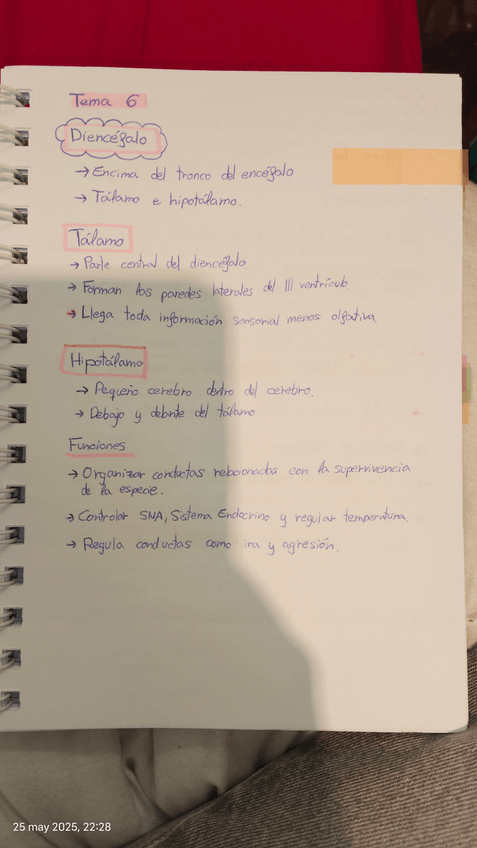 Tema 6
Diencéfalo
→ Encima del tronco del encéfalo
→ Tálamo e hipotálamo.
Tálamo
→ Parte central del diencéfalo
→ Forman las paredes laterales del III ventrículo
→ Llega toda información sensorial menos olfativa
Hipotálamo
→ Pequeño cerebro dentro del cerebro.
→ Debajo y delante del tálamo
Funciones
→ Organizar conductas relacionadas con la supervivencia
de la especie.
→ Controlar SNA, Sistema Endocrino y regular temperatura.
→ Regula conductas como ira y agresión.
25 may 2025, 22:28